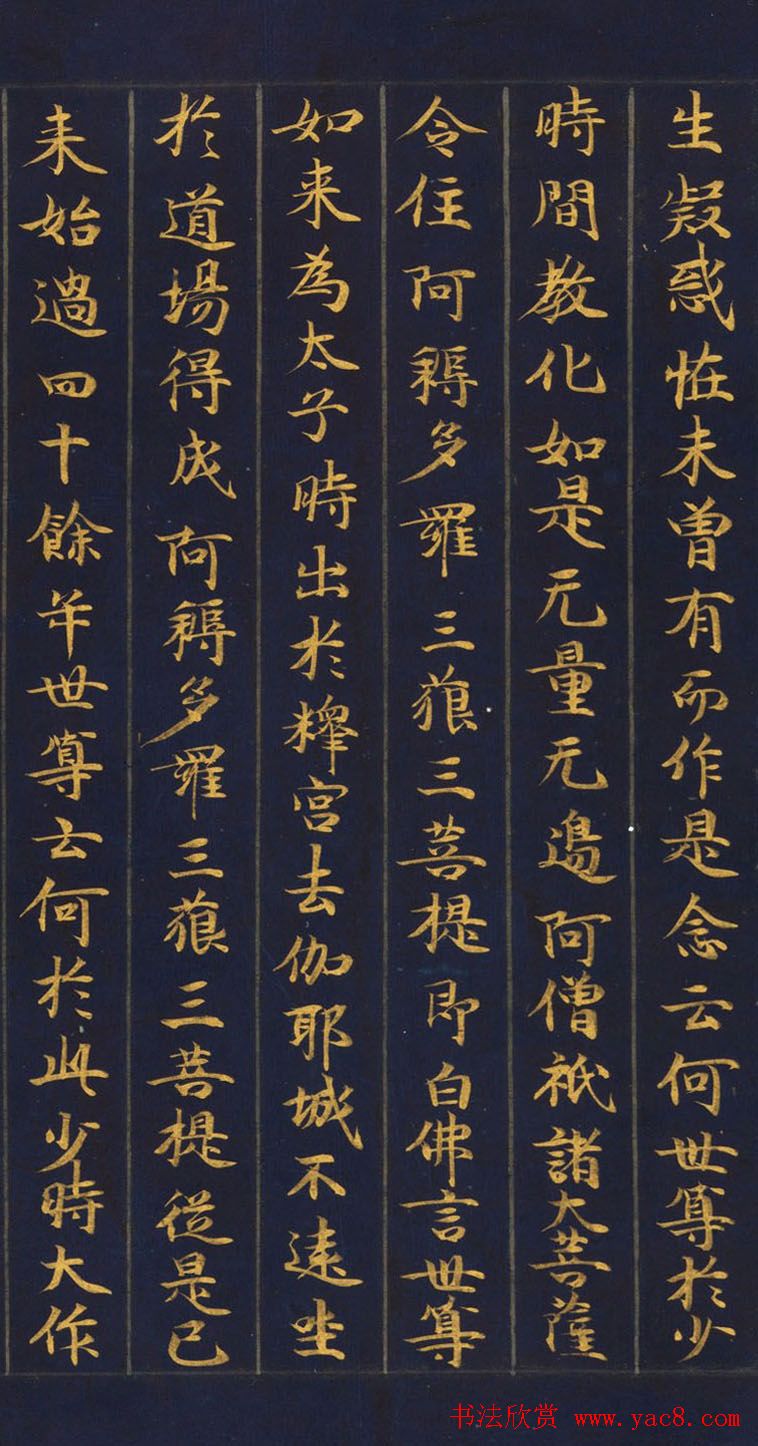 生疑惑恠未曾有而作是念云何世尊於少
時間教化如是无量无邊阿僧祇諸大菩薩
令住阿耨多羅三藐三菩提即白佛言世尊
如来為太子時出於釋宮去伽耶城不遠坐
於道場得成阿耨多羅三藐三菩提從是已
来始過四十餘年世尊云何於此少時大作
书法欣赏 www.yac8.com